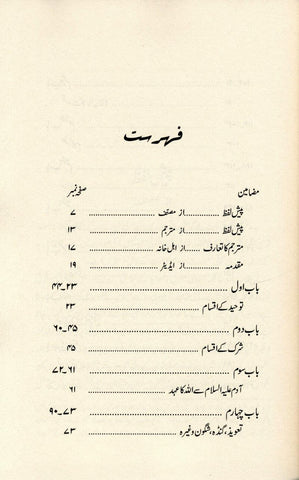 فہرست
مضامین صفحہ نمبر
پیش لفظ ............ از مصنف ............ ۷
پیش لفظ ............ از مترجم ............ ۱۳
مترجم کا تعارف ............ از اہل خانہ ............ ۱۷
مقدمہ ............ از ایڈیٹر ............ ۱۹
باب اول ............ ۲۳۔۴۴
توحید کے اقسام ............ ۲۳
باب دوم ............ ۴۵۔۶۰
شرک کے اقسام ............ ۴۵
باب سوم ............ ۶۱۔۷۲
آدم علیہ السلام سے اللہ کا عہد ............ ۶۱
باب چہارم ............ ۷۳۔۹۰
تعویذ، گنڈہ، شگون وغیرہ ............ ۷۳